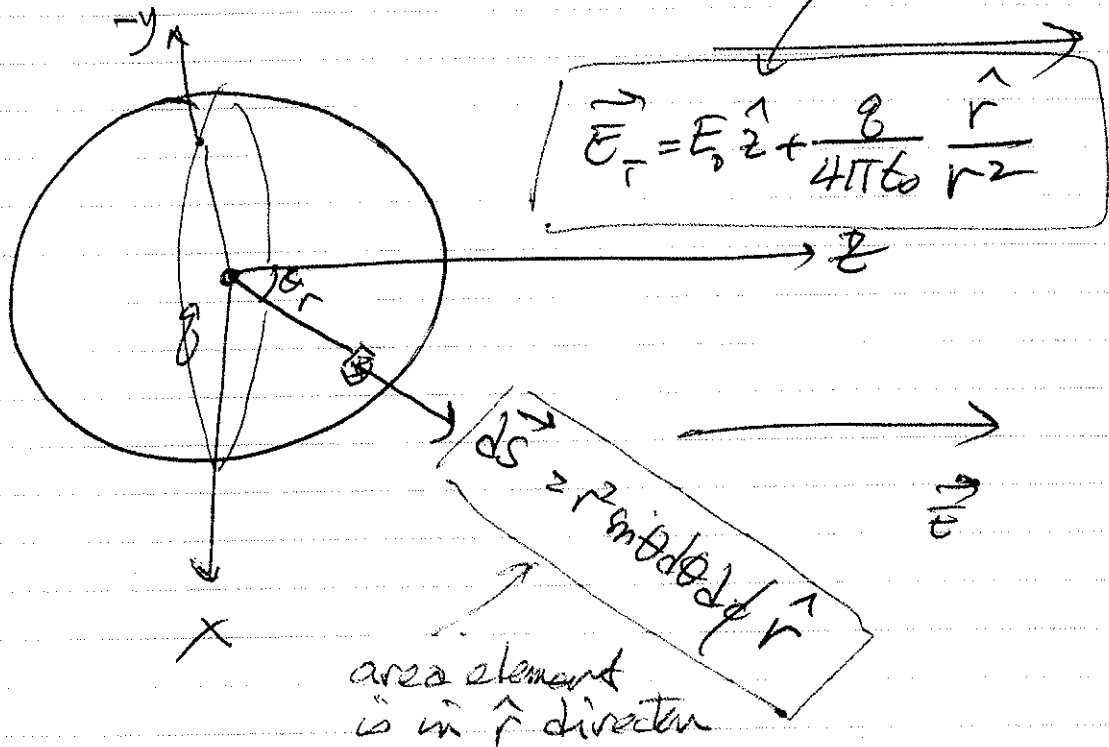 -y
\vec{E}_T = E_0 \hat{z} + \frac{q}{4\pi\epsilon_0} \frac{\hat{r}}{r^2}
z
θ
r
q
d\vec{s} = r^2 sinθdθdϕ \hat{r}
\vec{E}
x
area element
is in \hat{r} direction